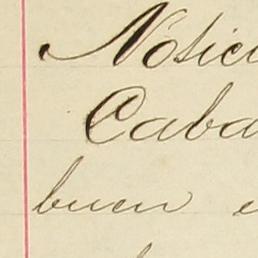 Notici
Caba
buen e